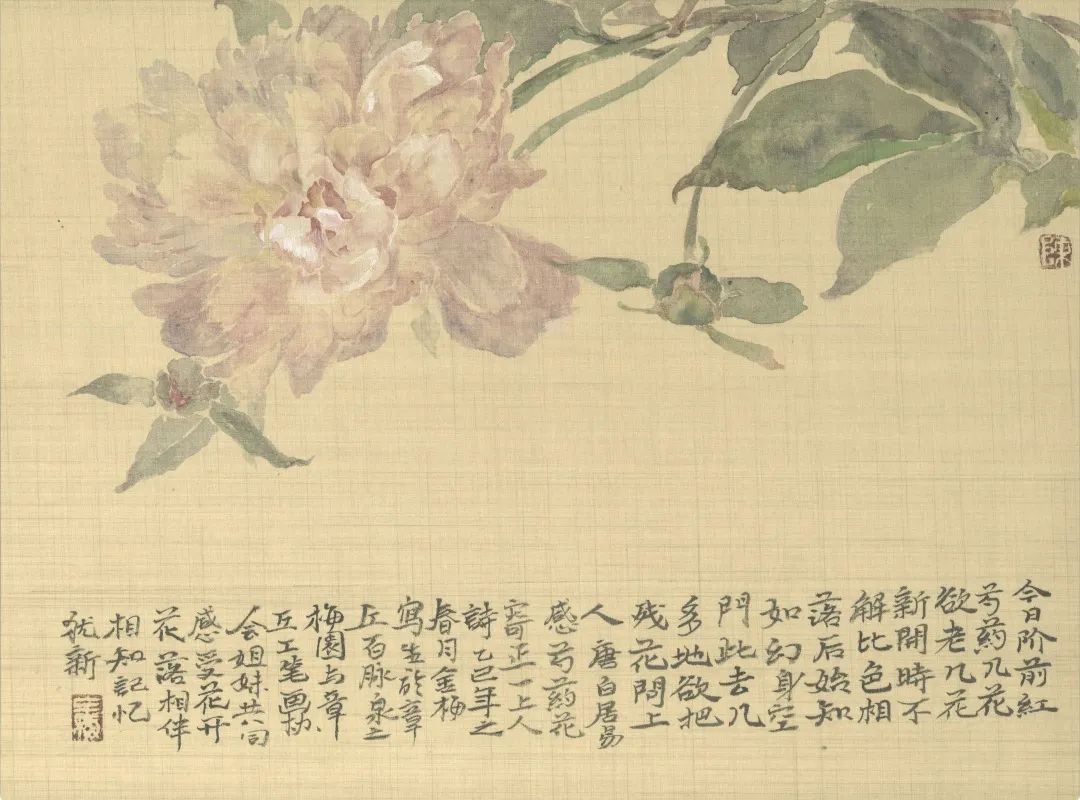 今日阶前紅
芍葯几花
欲老几花
新開時不
解比色相
落后始知
如幻身空
門此去几
多地欲把
残花問上
人 唐白居易
感芍葯花
寄正一上人
詩乙巳年之
春月金梅
写生於章
丘百脉泉之
梅園与章
丘工笔画协
会姐妹共同
感受花开
花落相伴
相知記忆
犹新